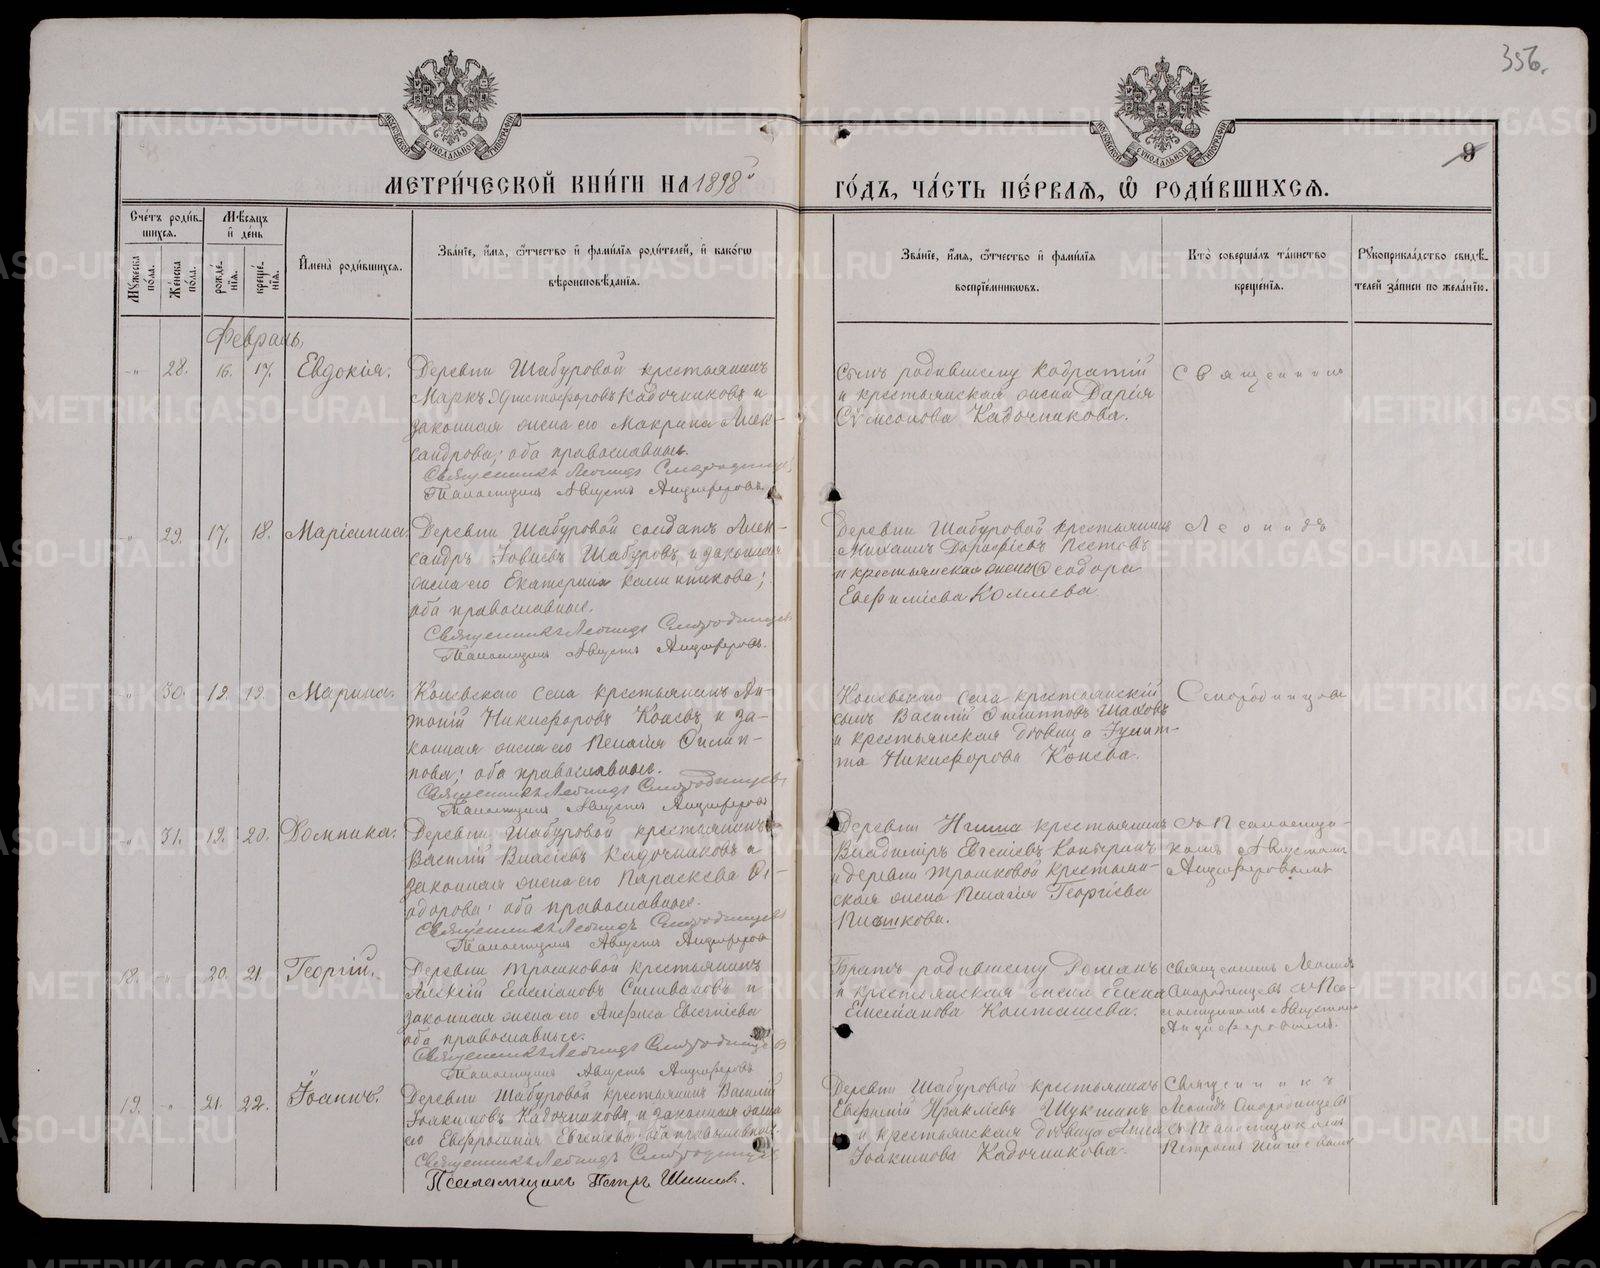 356.
9
МОСКОВСКОЙ СѴНОДАЛЬНОЙ ТИПОГРАФІИ
МОСКОВСКОЙ СѴНОДАЛЬНОЙ ТИПОГРАФІИ
МЕТРИ́ЧЕСКОЙ КНИ́ГИ НА 1898й
ГО́ДЪ, ЧА́СТЬ ПЕ́РВАЯ, Ѽ РОДИ́ВШИХСЯ.
Сче́тъ роди́в-
шихся.
Мꙋжеска по́ла.
Же́нска по́ла.
Мѣ́сяцъ
и҆ де́нь
рожде́нїя.
креще́нїя.
И҆мена̀ роди́вшихся.
Зва́нїе, и҆́мя, ѻ҆́тчество и҆ фами́лїя роди́телей, и҆ како́гѡ
вѣроисповѣ́данїя.
Зва́нїе, и҆́мя, ѻ҆́тчество и҆ фами́лїя
воспрїе́мникѡвъ.
Кто̀ соверша́лъ та́инство
креще́нїя.
Рꙋкоприкла́дство свидѣ́-
телей за́писи по жела́нїю.
Февраль.
-"- 28. 16. 17. Евдокія.
Деревни Шабуровой крестьянинъ
Маркъ Христофоровъ Кадочниковъ и
законная жена его Макрина Алек-
сандрова; оба православные.
Священникъ Леонидъ Смородинцевъ
Псаломщикъ Августъ Анциферовъ.
Сынъ родившему Кодратій
и крестьянская жена Дарія
Сѵмсонова Кадочникова.
Священникъ
-"- 29. 17. 18. Маріамна.
Деревни Шабуровой солдатъ Алек-
сандръ Іовлевъ Шабуровъ и законная
жена его Екатерина Каллиникова;
оба православные.
Священникъ Леонидъ Смородинцевъ
Псаломщикъ Августъ Анциферовъ.
Деревни Шабуровой крестьянинъ
Михаилъ Дорофеевъ Пестовъ
и крестьянская жена Ѳеодора
Евфиміева Комлева.
Леонидъ
-"- 30. 19. 19. Марина.
Коневскаго села крестьянинъ Ан-
тоній Никифоровъ Коневъ и за-
конная жена его Пелагія Филип-
пова; оба православные.
Священникъ Леонидъ Смородинцевъ
Псаломщикъ Августъ Анциферовъ
Коневскаго села крестьянскій
сынъ Василій Филипповъ Шаховъ
и крестьянская дѣвица Іулит-
та Никифорова Конева.
Смородинцевъ
-"- 31. 19. 20. Домника.
Деревни Шабуровой крестьянинъ
Василій Власіевъ Кадочниковъ и
законная жена его Параскева Ѳе-
одорова; оба православные.
Священникъ Леонидъ Смородинцевъ
Псаломщикъ Августъ Анциферовъ
Деревни крестьянинъ
Владиміръ Евгеніевъ
и деревни Трошковой крестьян-
ская жена Пелагія Георгіева
съ Псаломщи-
комъ Августомъ
Анциферовымъ
18. -"- 20. 21. Георгій.
Деревни Трошковой крестьянинъ
Алексій Емеліановъ Силивановъ и
законная жена его Анфиса Евгеніева
оба православные.
Священникъ Леонидъ Смородинцевъ
Псаломщикъ Августъ Анциферовъ
Братъ родившему Романъ
и крестьянская жена Елена
Емеліанова
Священникъ Леонидъ
Смородинцевъ съ Пса-
ломщикомъ Августомъ
Анциферовымъ.
19. -"- 21. 22. Іоаннъ.
Деревни Шабуровой крестьянинъ Василій
Іоакимовъ Кадочниковъ и законная жена
его Евфросинія Евгеніева; оба православные.
Священникъ Леонидъ Смородинцевъ
Псаломщикъ Петръ Шишевъ.
Деревни Шабуровой крестьянинъ
Евфимій Ираклиевъ Щукинъ
и крестьянская дѣвица Анна
Іоакимова Кадочникова.
Священникъ
Леонидъ Смородинцевъ
съ Псаломщикомъ
Петромъ Шишевымъ
METRIKI.GASO-URAL.RU